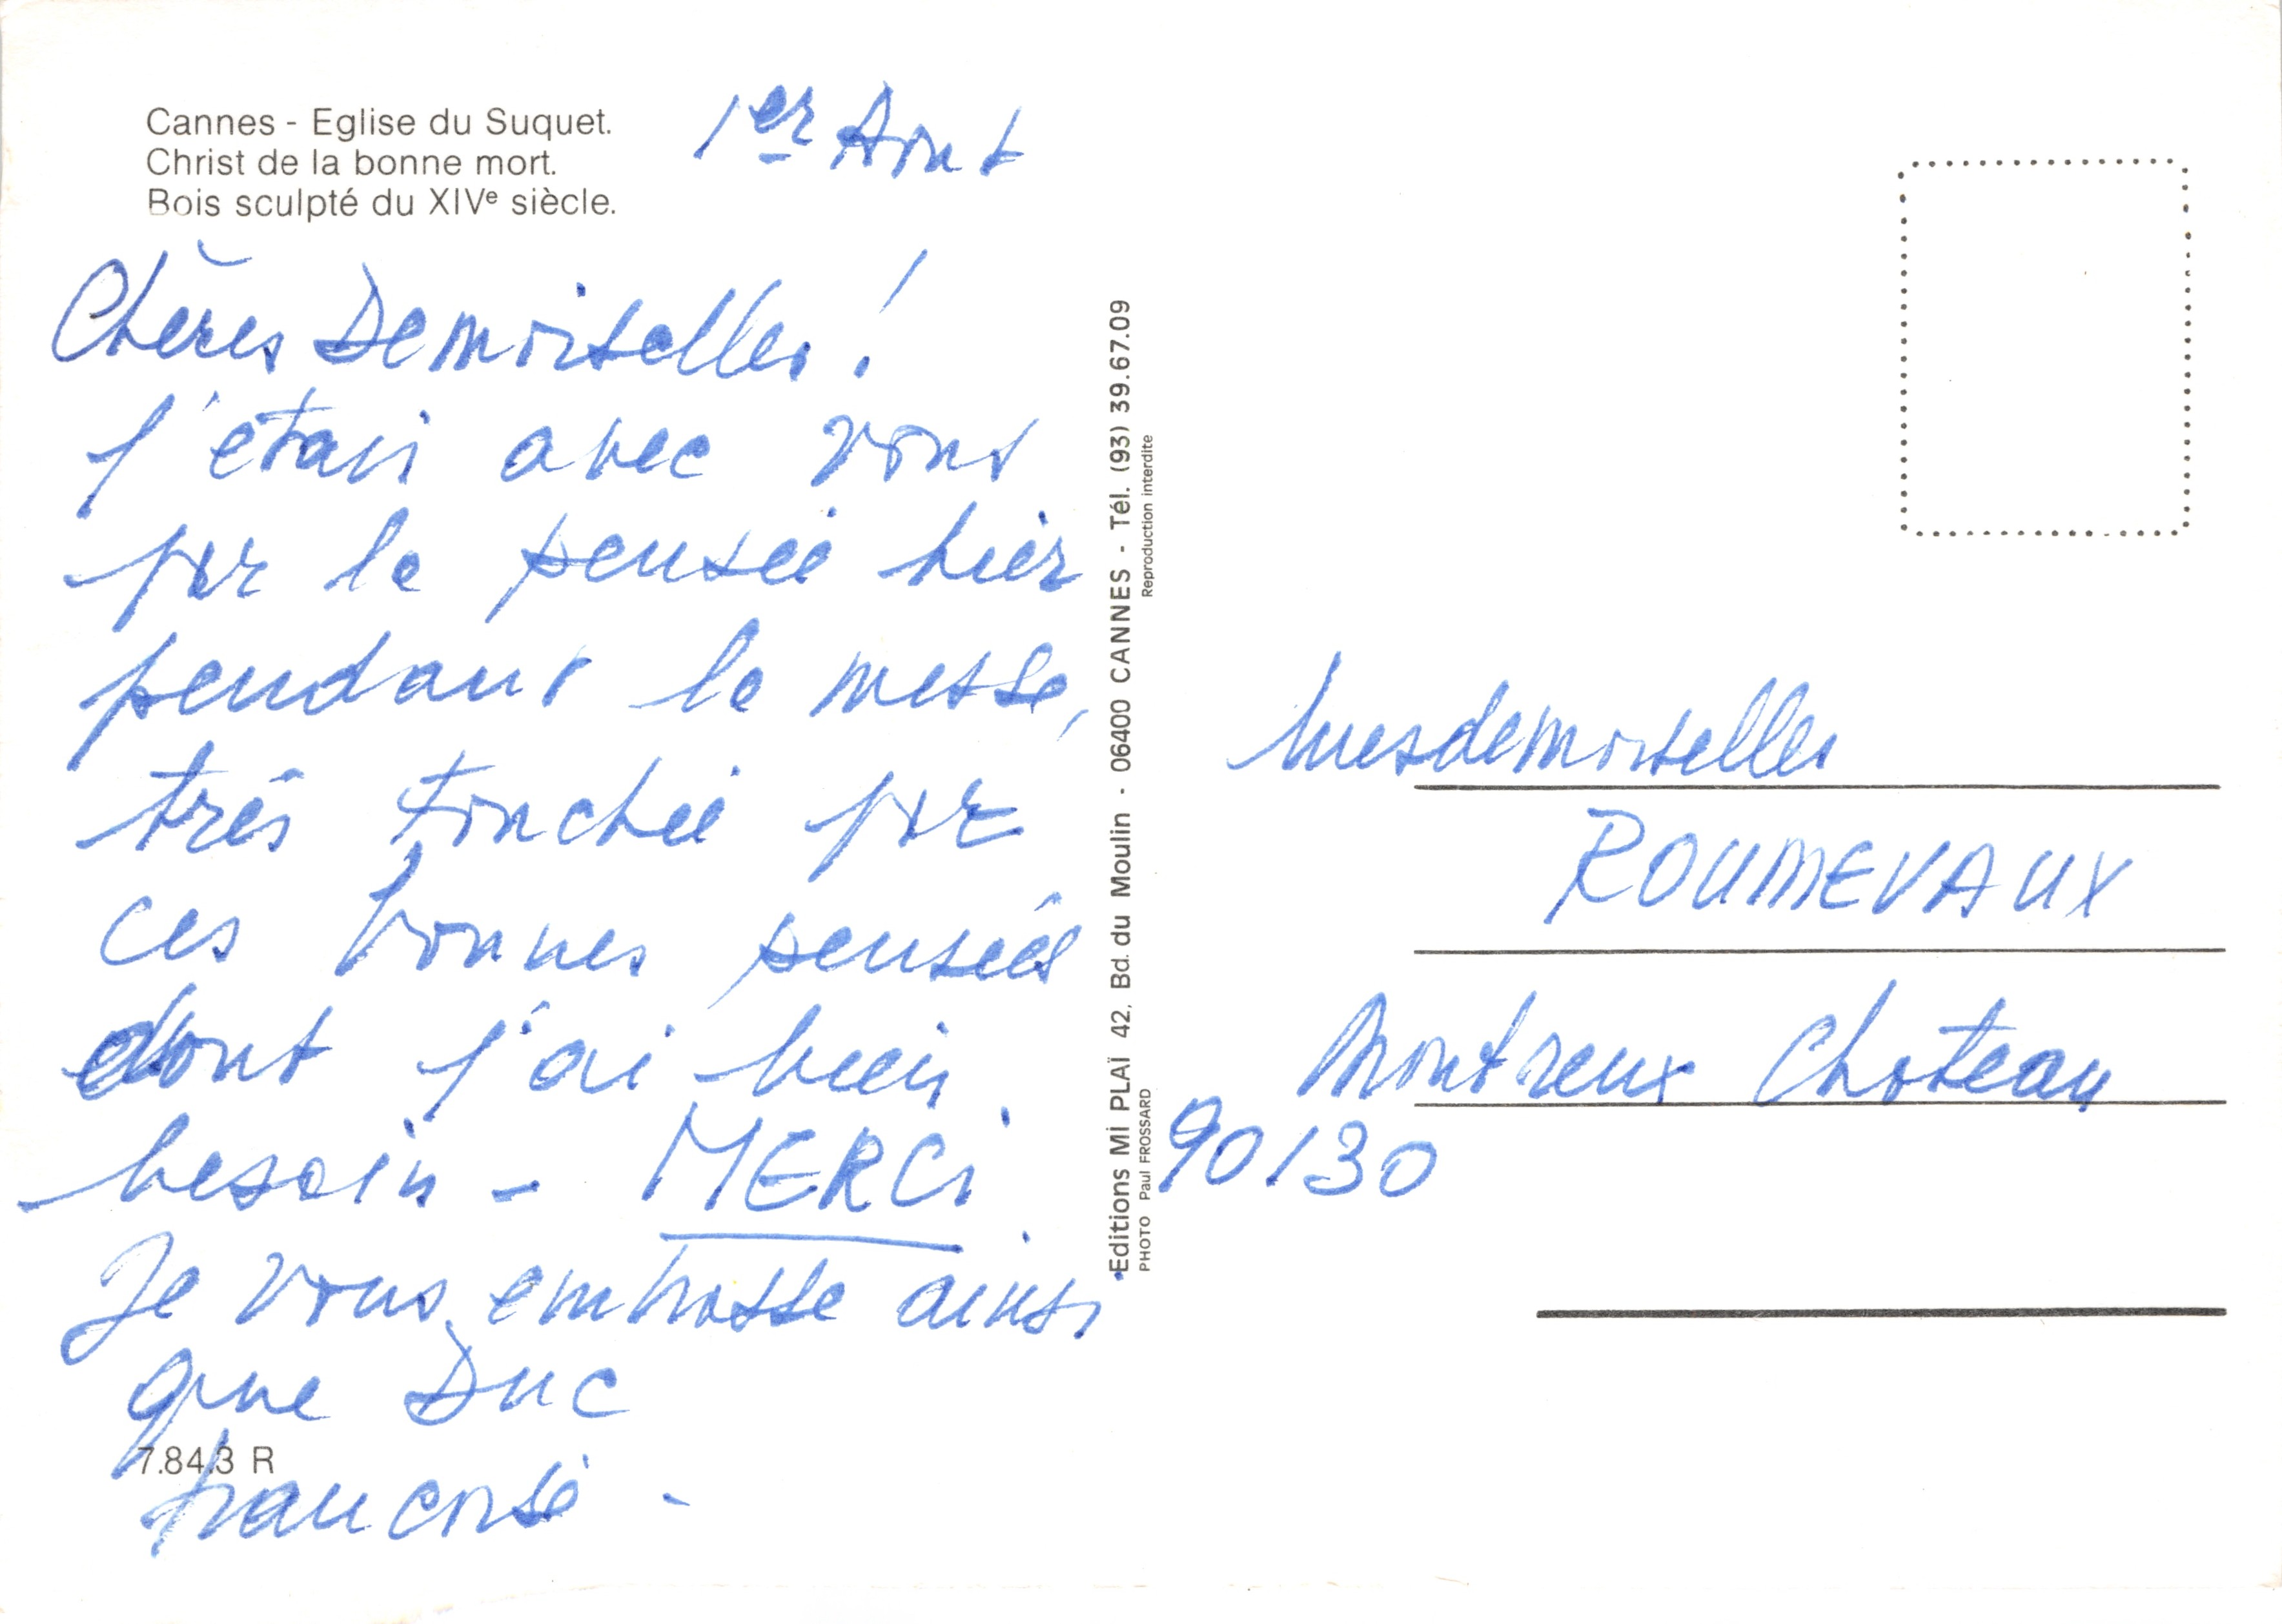 Cannes - Eglise du Suquet.
Christ de la bonne mort.
Bois sculpté du XIVe siècle.
1er Aout
Chères Demoiselles !
j'étais avec vous
par la pensée hier
pendant la messe,
très touchée par
ces bonnes pensées
dont j'ai bien
besoin - MERCi.
Je vous embrasse ainsi
que Duc
7.84.3 R
françoise -
Editions Mİ PLAÏ 42, Bd. du Moulin - 06400 CANNES - Tél. (93) 39.67.09
PHOTO Paul FROSSARD Reproduction interdite
Mesdemoiselles
ROUMEVAUX
Montreux Chateau
90130